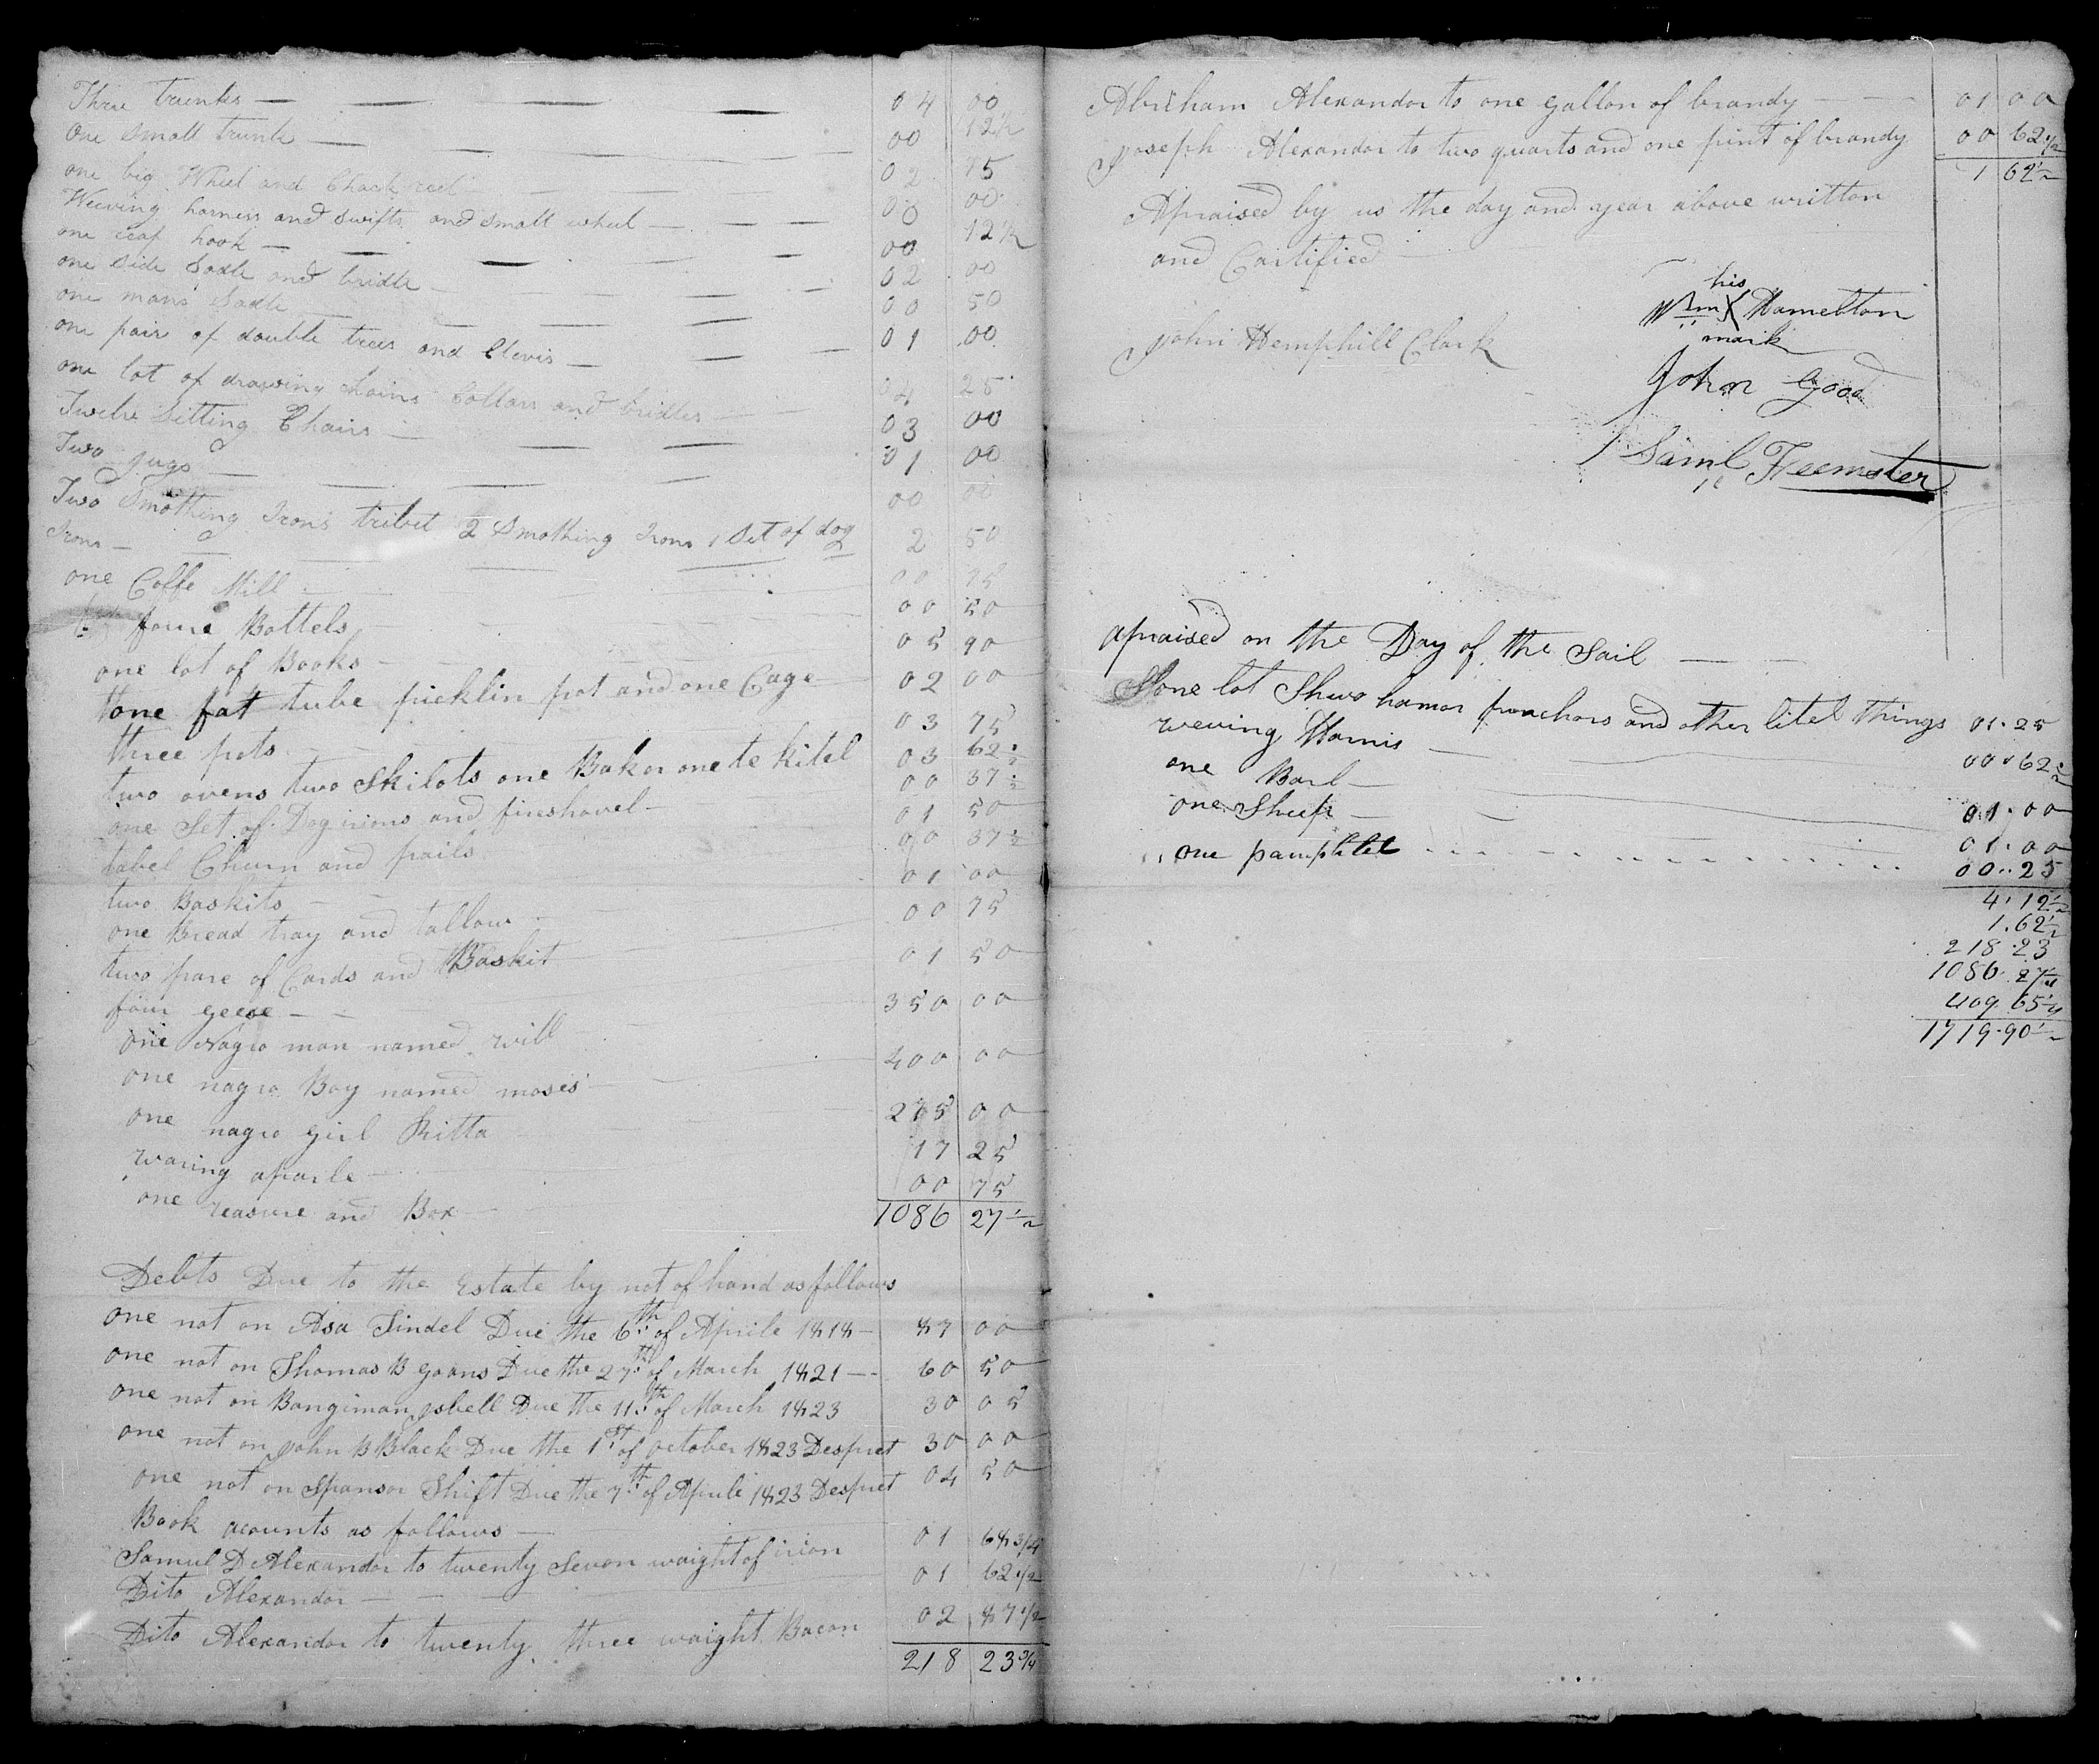 Three trunks — 04 00
One small trunk — 00 12½
one big Wheel and Chack reel — 02 75
Weeving harness and swifts and small wheel — 00 00
one reap hook — 00 12½
one side Sadle and bridle — 02 00
one mans Sadle — 00 50
one pair of double trees and Clevis — 01 00
one lot of drawing chains Collars and bridles — 04 25
Twelve Sitting Chairs — 03 00
Two jugs — 01 00
Two Smothing Irons tribet 2 Smothing Irons 1 Set of dog 00 00
Irons — 2 50
one Coffe Mill — 00 75
foure Bottels — 00 50
one lot of Books — 05 90
one fat tube picklin pot and one Cage 02 00
three pots 03 75
two ovens two Skilots one Baker one te kitel 03 62½
one Set of Dog irons and fireshovel — 00 37½
tabel Churn and pails 01 50
two Baskits — 00 37½
one Bread tray and tallow 01 00
two pare of Cards and Baskit 00 75
four geese — 01 50
one Nagro man named will 350 00
one nagro Boy named moses 400 00
one nagro girl Ritta 275 00
waring aparle — 17 25
one reasure and Box 00 75
1086 27½
Debts Due to the Estate by not of hand as follows
one not on Asa Tindel Due the 6th of Aprile 1818 — 87 00
one not on Thomas B goans Due the 27th of March 1821 — 60 50
one not on Bangiman yshell Due the 11th of March 1823 30 05
one not on John B Black Due the 1st of october 1823 Despret 30 00
one not on Spansor Shift Due the 7th of Aprile 1823 Despret 04 50
Book acounts as follows —
Samul D Alexandor to twenty Seven waight of irion 01 68 3/4
Dito Alexandor — 01 62 1/2
Dito Alexandor to twenty three waight Bacon 02 87 1/2
218 23 3/4
Abriham Alexandor to one gallon of brandy — 01 00
Joseph Alexandor to two quarts and one pint of brandy 00 62½
1 62½
Apraised by us the day and year above written
and Cartified
his
Wm X Hamelton
mark
John Hemphill Clark
John Good
Saml Feemster
apraised on the Day of the Sail —
one lot Shuo hamor ponchors and other litel things 01.25
weving Harnis — 00.62½
one Barl — 01.00
one Sheep — 01.00
one pamphlet 00..25
4.12½
1.62½
218.23
1086.27½
409.65¼
1719.90½